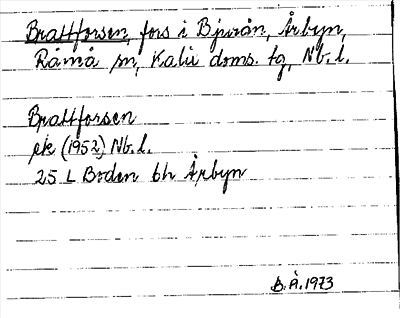 Brattforsen, fors i Bjurån, Årbyn,
Råneå sn, Kalix doms. tg, Nb. l.
Brattforsen
ek (1952) Nb. l.
25 L Boden bh Årbyn
B. Å. 1973